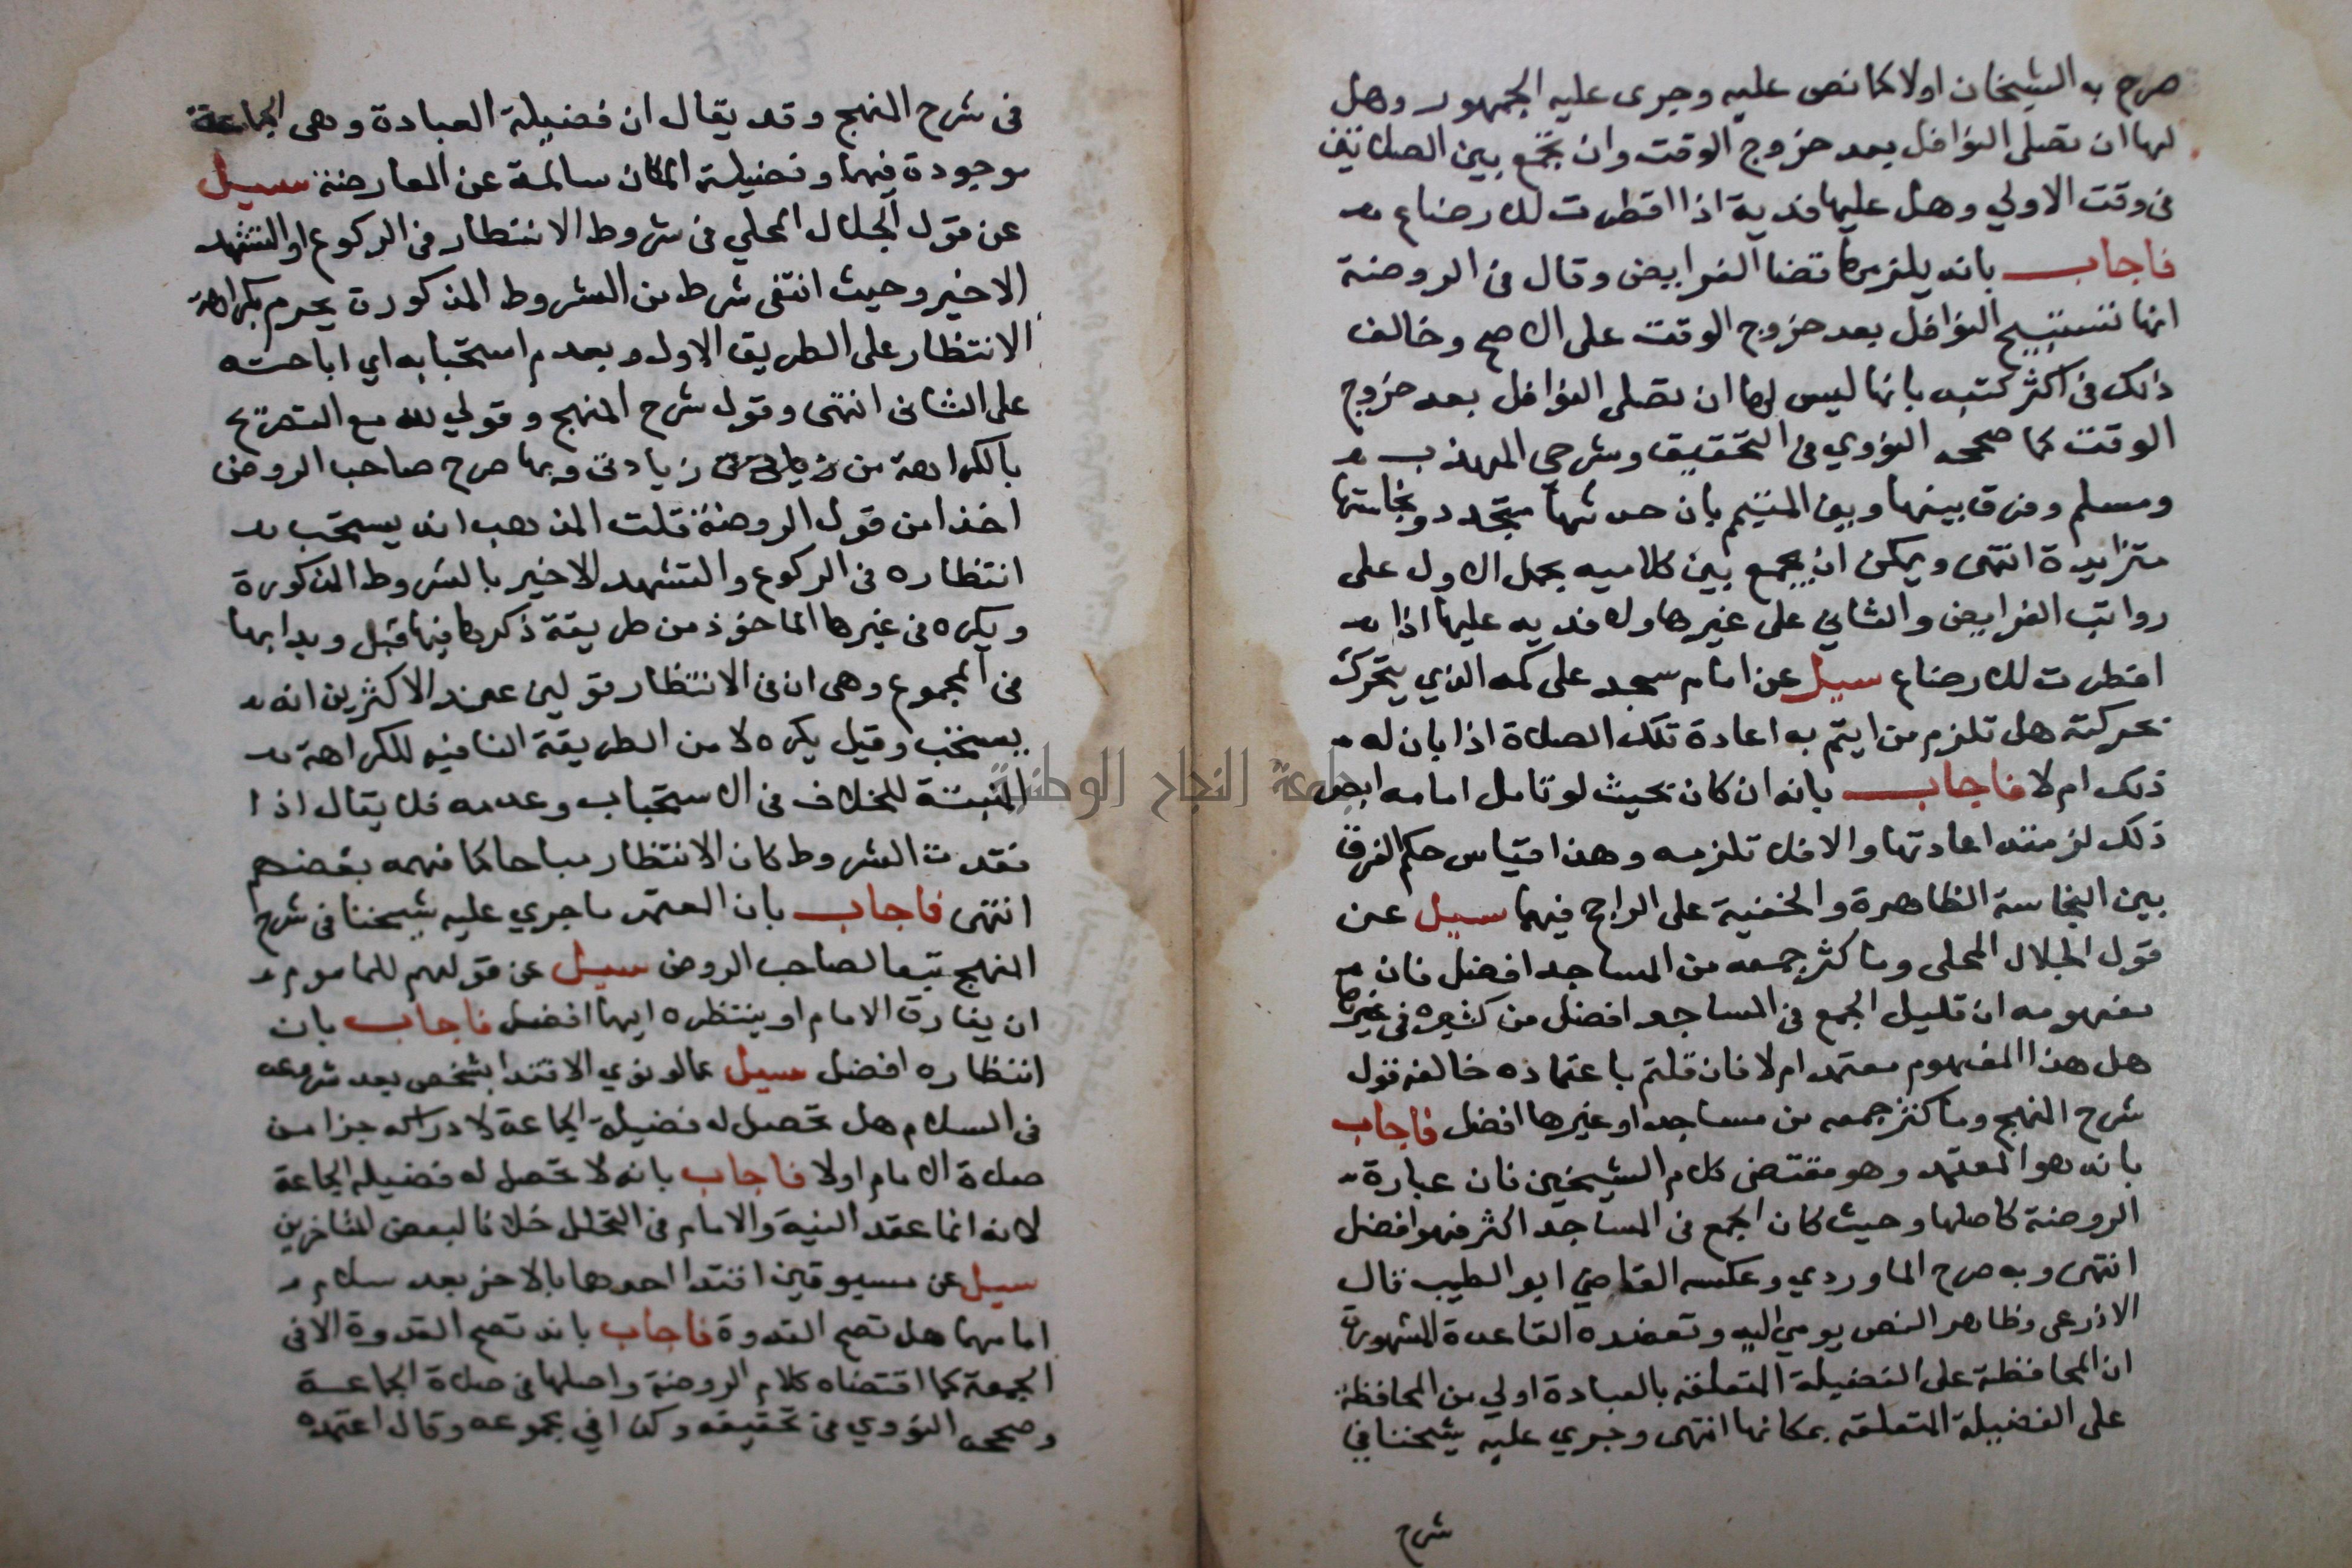 صرح به الشيخان اولا كما نص عليه وجرى عليه الجمهور وهل
لها ان تصلى النوافل بعد خروج الوقت وان تجمع بين الصلاتين
فى وقت الاولي وهل عليها فدية اذا افطرت للارضاع
فاجاب بانه يلزمها قضا الفرايض وقال فى الروضة
انها تستبيح النوافل بعد خروج الوقت على الاصح وخالف
ذلك فى اكثر كتبه بانها ليس لها ان تصلى النوافل بعد خروج
الوقت كما صححه النووي فى التحقيق وشرحي المهذب
ومسلم وفرق بينها وبين المتيمم بان حدثها متجدد ونجاستها
متزايدة انتهى ويمكن ان يجمع بين كلاميه بحمل الاول على
رواتب الفرايض والثاني على غيرها ولا فديه عليها اذا
افطرت للارضاع سيل عن امام سجد على كمه الذي يتحرك
بحركته هل تلزم من ايتم به اعادة تلك الصلاة اذا بان له
ذلك ام لا فاجاب بانه ان كان بحيث لو تامل امامه ابصر
ذلك لزمته اعادتها والا فلا تلزمه وهذا قياس حكم الفرق
بين النجاسة الظاهرة والخفية على الراجح فيهما سيل عن
قول الجلال المحلى وما كثر جمعه من المساجد افضل فان
مفهومه ان قليل الجمع فى المساجد افضل من كثيره فى غيرها
هل هذا المفهوم معتمد ام لا فان قلتم باعتماده خالفه قول
شرح المنهج وما كثر جمعه من مساجد او غيرها افضل فاجاب
بانه هو المعتمد وهو مقتضى كلام الشيخين فان عبارة
الروضة كاصلها وحيث كان الجمع فى المساجد اكثر فهو افضل
انتهى وبه صرح الماوردي وعكسه القاضي ابو الطيب قال
الاذرعى وظاهر النص يومي اليه وتعضده القاعدة المشهورة
ان المحافظة على الفضيلة المتعلقة بالعبادة اولي من المحافظة
على الفضيلة المتعلقه بمكانها انتهى وجري عليه شيخنا في
شرح
فى شرح المنهج وقد يقال ان فضيلة العبادة وهى الجماعة
موجودة فيهما وفضيلة المكان سالمة عن المعارضة سيل
عن قول الجلال المحلي فى شروط الانتظار فى الركوع او التشهد
الاخير وحيث انتفى شرط من الشروط المذكورة يحرم بكراهة
الانتظار على الطريق الاول وبعدم استحبابه اي اباحته
على الثانى انتهى وقول شرح المنهج وقولي لله مع التصريح
بالكراهة من زيادتى وبها صرح صاحب الروض
اخذا من قول الروضة قلت المذهب انه يستحب
انتظاره فى الركوع والتشهد الاخير بالشروط المذكورة
ويكره فى غيرها الماخوذ من طريقة ذكرها فيها قبل وبدا بها
فى المجموع وهى ان فى الانتظار قولين عند الاكثرين انه
يستحب وقيل يكره لا من الطريقة النافيه للكراهة
المثبتة للخلاف فى الاستحباب وعدمه فلا يقال اذا
فقدت الشروط كان الانتظار مباحا كما فهمه بعضهم
انتهى فاجاب بان المعتمد ما جري عليه شيخنا فى شرح
المنهج تبعا لصاحب الروض سيل عن قولهم للماموم
ان يفارق الامام او ينتظره ايهما افضل فاجاب بان
انتظاره افضل سيل عما لو نوي الاقتدا بشخص بعد شروعه
فى السلام هل تحصل له فضيلة الجماعة لادراكه جزا من
صلاة الامام اولا فاجاب بانه لا تحصل له فضيله الجماعة
لانه انما عقد النية والامام فى التحلل خلافا لبعض المتاخرين
سيل عن مسبوقين اقتدا احدهما بالاخر بعد سلام
امامهما هل تصح القدوة فاجاب بانه تصح القدوة الا فى
الجمعة كما اقتضاه كلام الروضة واصلها فى صلاة الجماعة
وصححه النووي فى تحقيقه وكذا في مجموعه وقال اعتمده
جامعة النجاح الوطنية